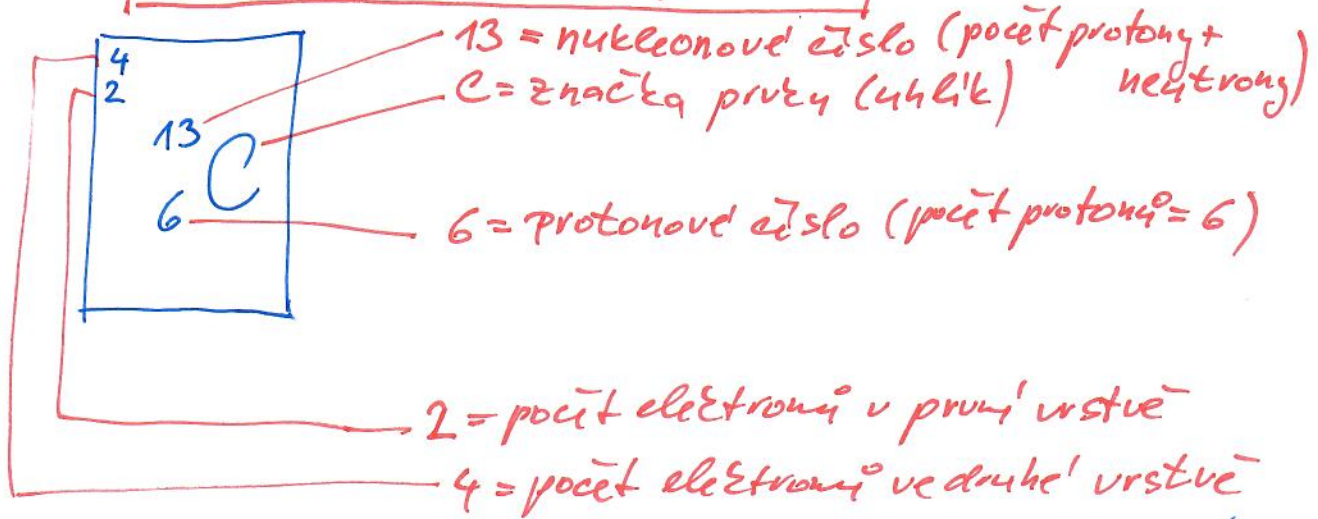 4
2
13
C
6
13 = nukleonové číslo (počet protony +
neutrony)
C = značka prvku (uhlík)
6 = protonové číslo (počet protonů = 6)
2 = počet elektronů v první vrstvě
4 = počet elektronů ve druhé vrstvě